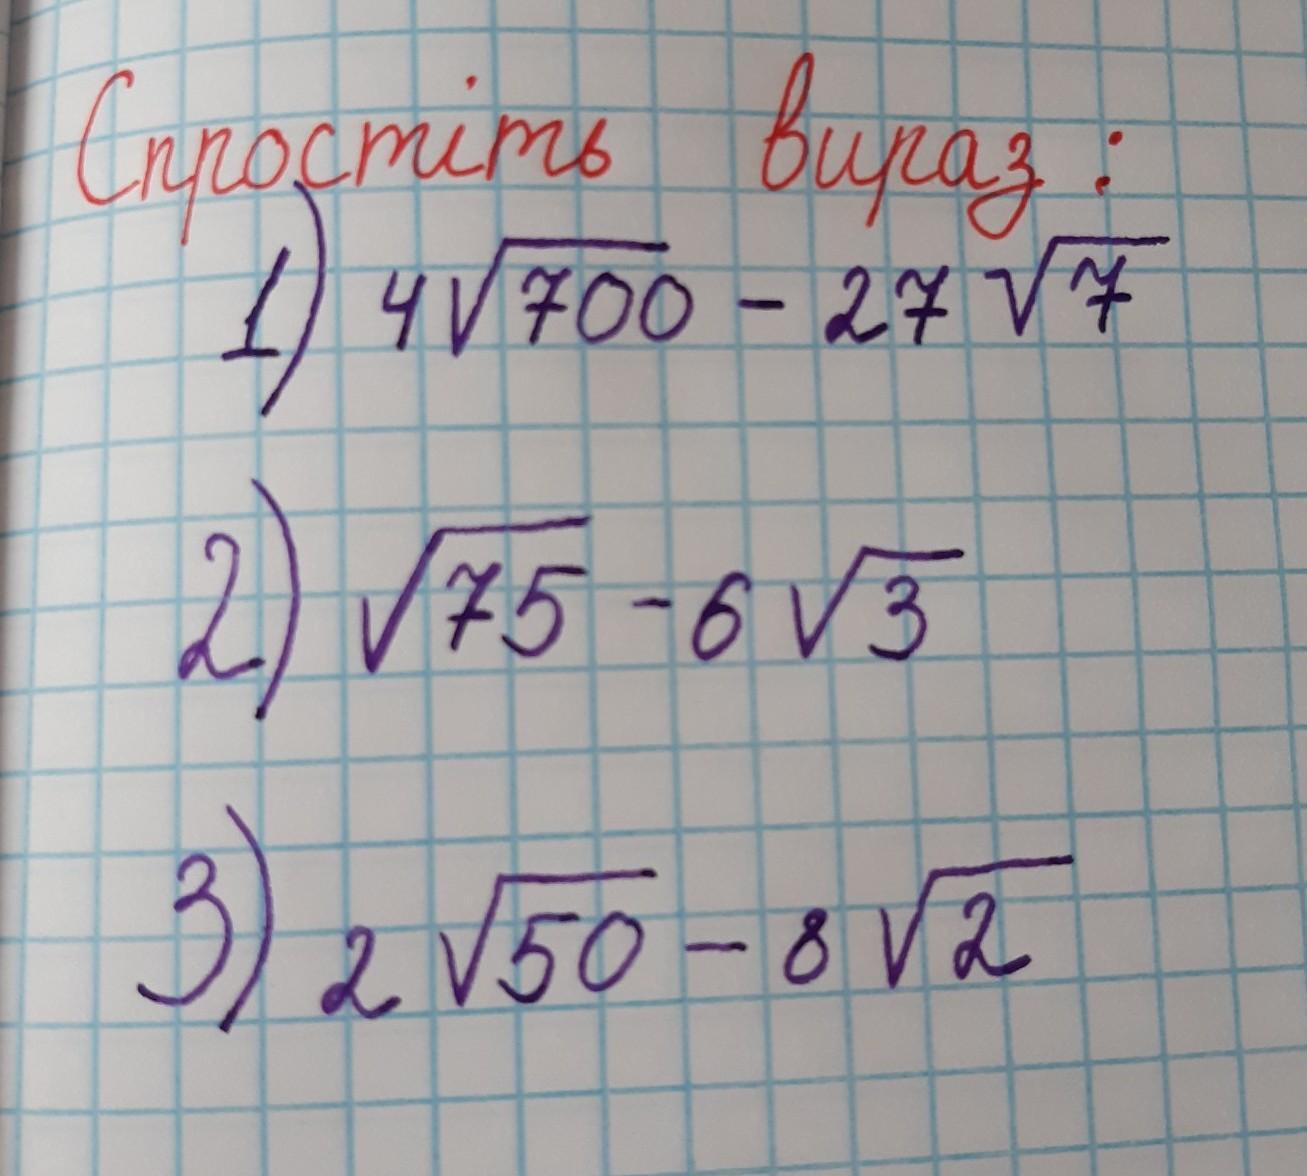 Спростіть вираз:
1) 4√700 - 27√7
2) √75 - 6√3
3) 2√50 - 8√2